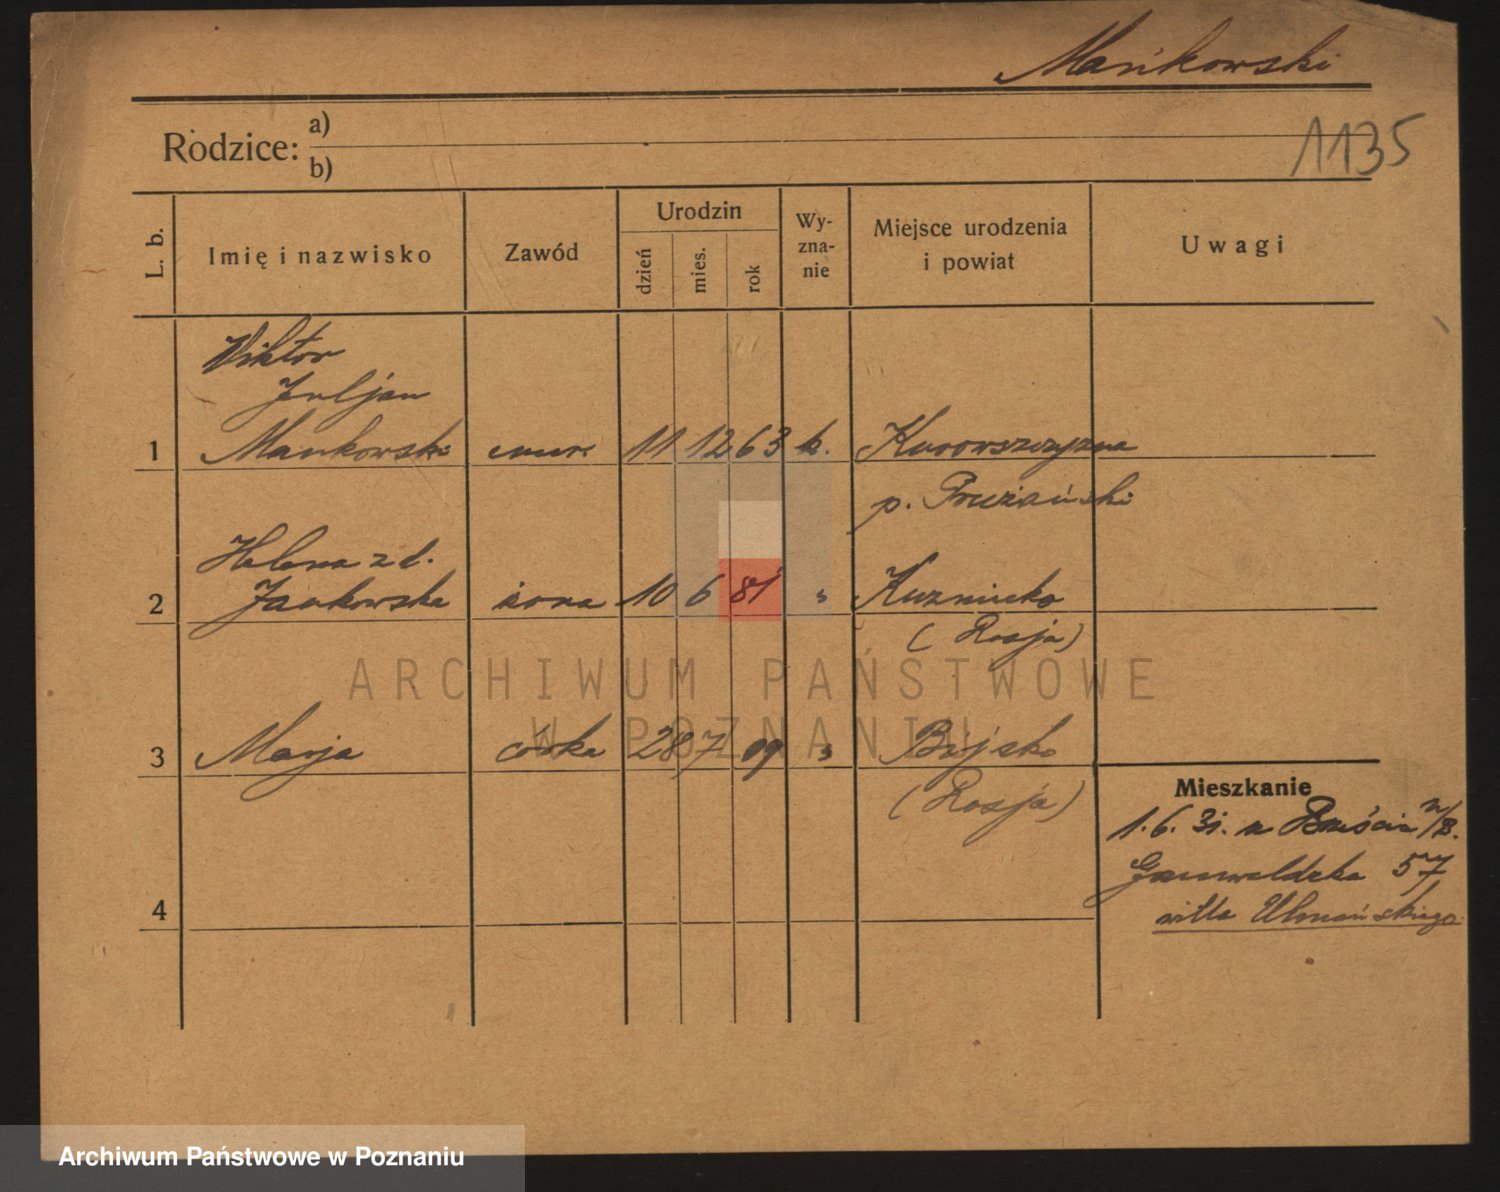 Mańkowski
Rodzice: a)
b)
1135
L. b.
Imię i nazwisko
Zawód
Urodzin
dzień
mies.
rok
Wy-
zna-
nie
Miejsce urodzenia
i powiat
Uwagi
Wiktor
Juljan
1 Mankowski emer. 11 12 63 k. Kurowszczyzna
p. Prużański
Helena z d.
2 Jankowska żona 10 6 81 " Kuzniecko
(Rosja)
ARCHIWUM PAŃSTWOWE
W POZNANIU
3 Marja córka 28 7 09 " Bijsko
(Rosja)
Mieszkanie
1.6.31. z Brześcia n/B.
Grunwaldzka 57
4
willa Ulmańskiego
Archiwum Państwowe w Poznaniu